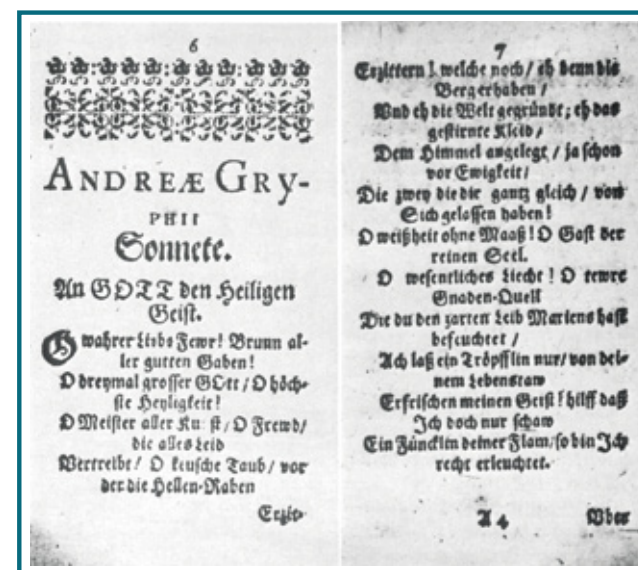 6
ANDREÆ GRY-
PHII
Sonnete.
An GOTT den Heiligen
Geist.
O wahrer Liebs Fewr! Brunn al-
ler gutten Gaben!
O dreymal grosser GOtt / O höch-
ste Heyligkeit!
O Meister aller Kunst / O Frewd /
die alles Leid
Vertreibt / O keusche Taub / vor
der die Hellen-Raben
Erzit-
7
Erzittern! welche noch / eh denn die
Berg erhaben /
Und eh die Welt gegründt; eh das
gestirnte Kleid /
Dem Himmel angelegt / ja schon
vor Ewigkeit /
Die zwey die die gantz gleich / von
Sich gelassen haben!
O weißheit ohne Maaß! O Gast der
reinen Seel.
O wesentliches Liecht! O tewre
Gnaden-Quell
Die du den zarten Leib Mariens hast
befeuchtet /
Ach laß ein Tröpfflin nur / von dei-
nem Lebenstaw
Erfrischen meinen Geist! hilff daß
Ich doch nur schaw
Ein Füncklin deiner Flam / so bin Ich
recht erleuchtet.
A 4
Uber